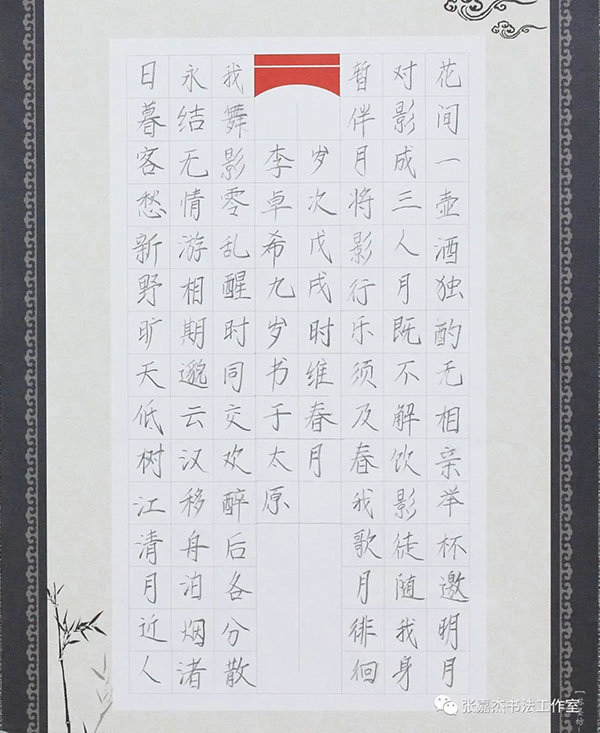 花间一壶酒独酌无相亲举杯邀明月
对影成三人月既不解饮影徒随我身
暂伴月将影行乐须及春我歌月徘徊
岁次戊戌时维春月
李卓希九岁书于太原
我舞影零乱醒时同交欢醉后各分散
永结无情游相期邈云汉移舟泊烟渚
日暮客愁新野旷天低树江清月近人
张嘉杰书法工作室